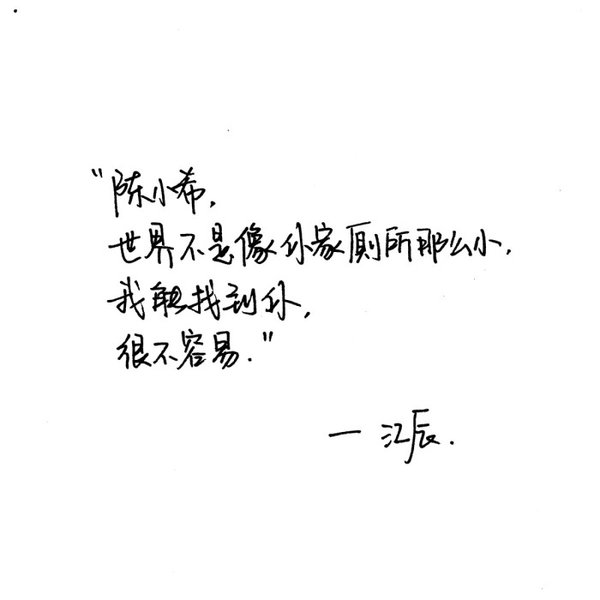 "陈小希，
世界不是像你家厕所那么小，
我能找到你，
很不容易."
— 江辰.